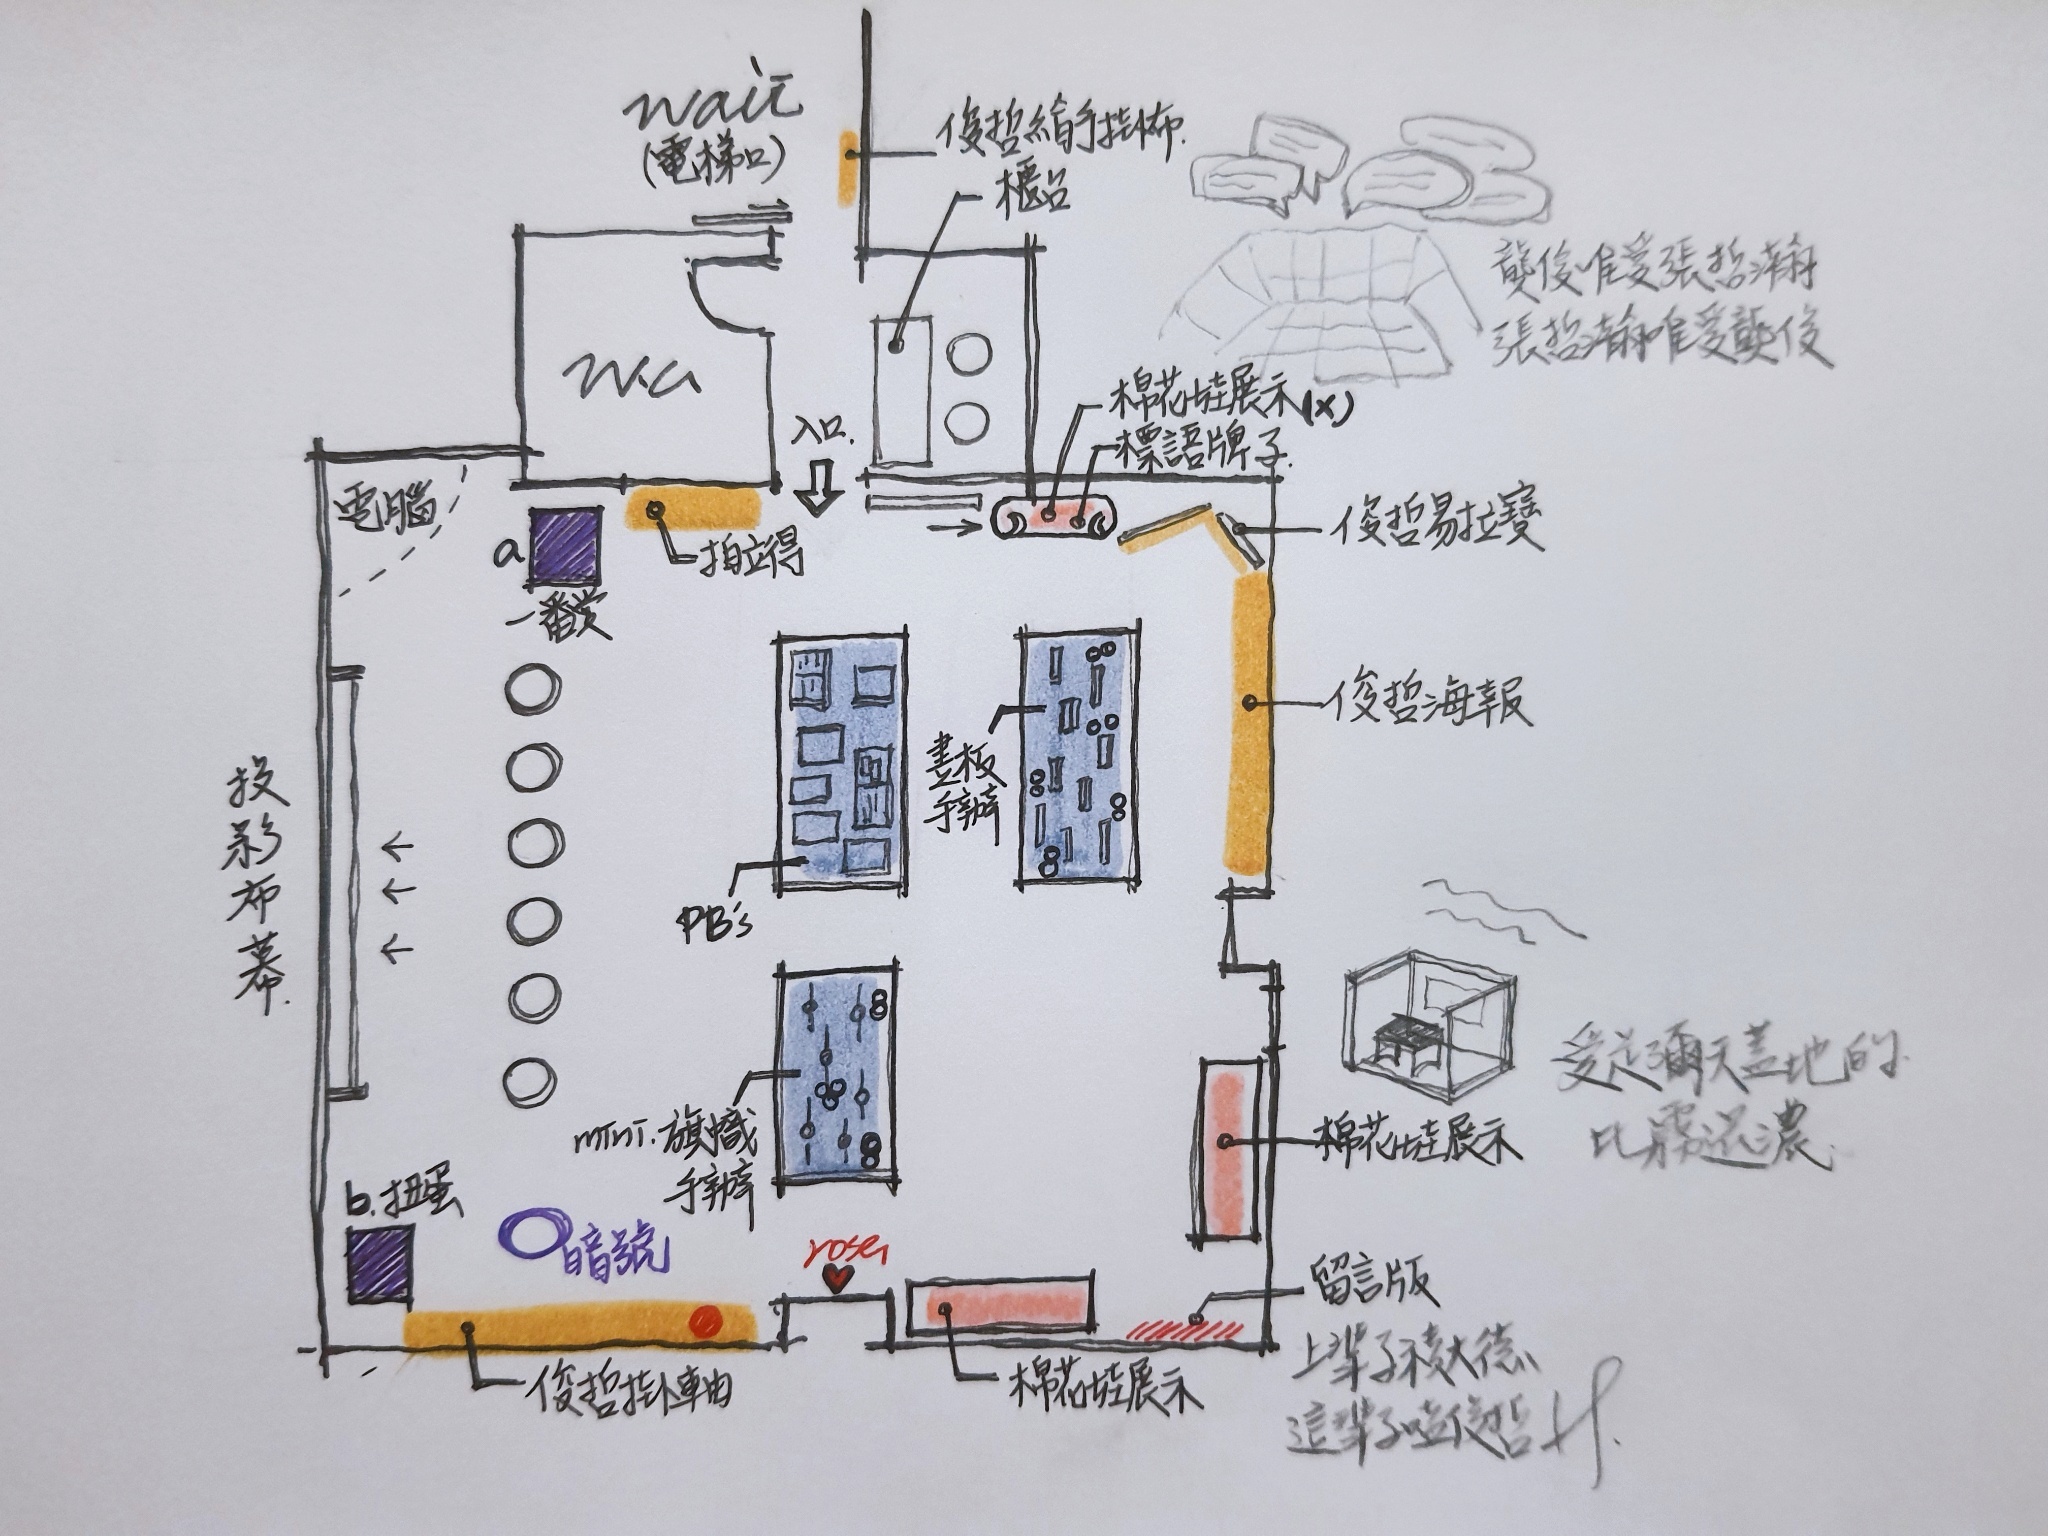 wait
(電梯口)
俊哲繪手掛布.
櫃台
龔俊唯愛張哲瀚
張哲瀚唯愛龔俊
W.C
入口.
棉花娃展示(x)
標語牌子.
電腦
a
一番賞
拍立得
俊哲易拉寶
俊哲海報
畫板
手辦
PB's
投影布幕.
mini.旗幟
手辦
棉花娃展示
愛是彌天蓋地的.
比霧還濃.
b.扭蛋
暗號
rose
留言版
俊哲掛軸
棉花娃展示
上輩子積大德、
這輩子嗑俊哲